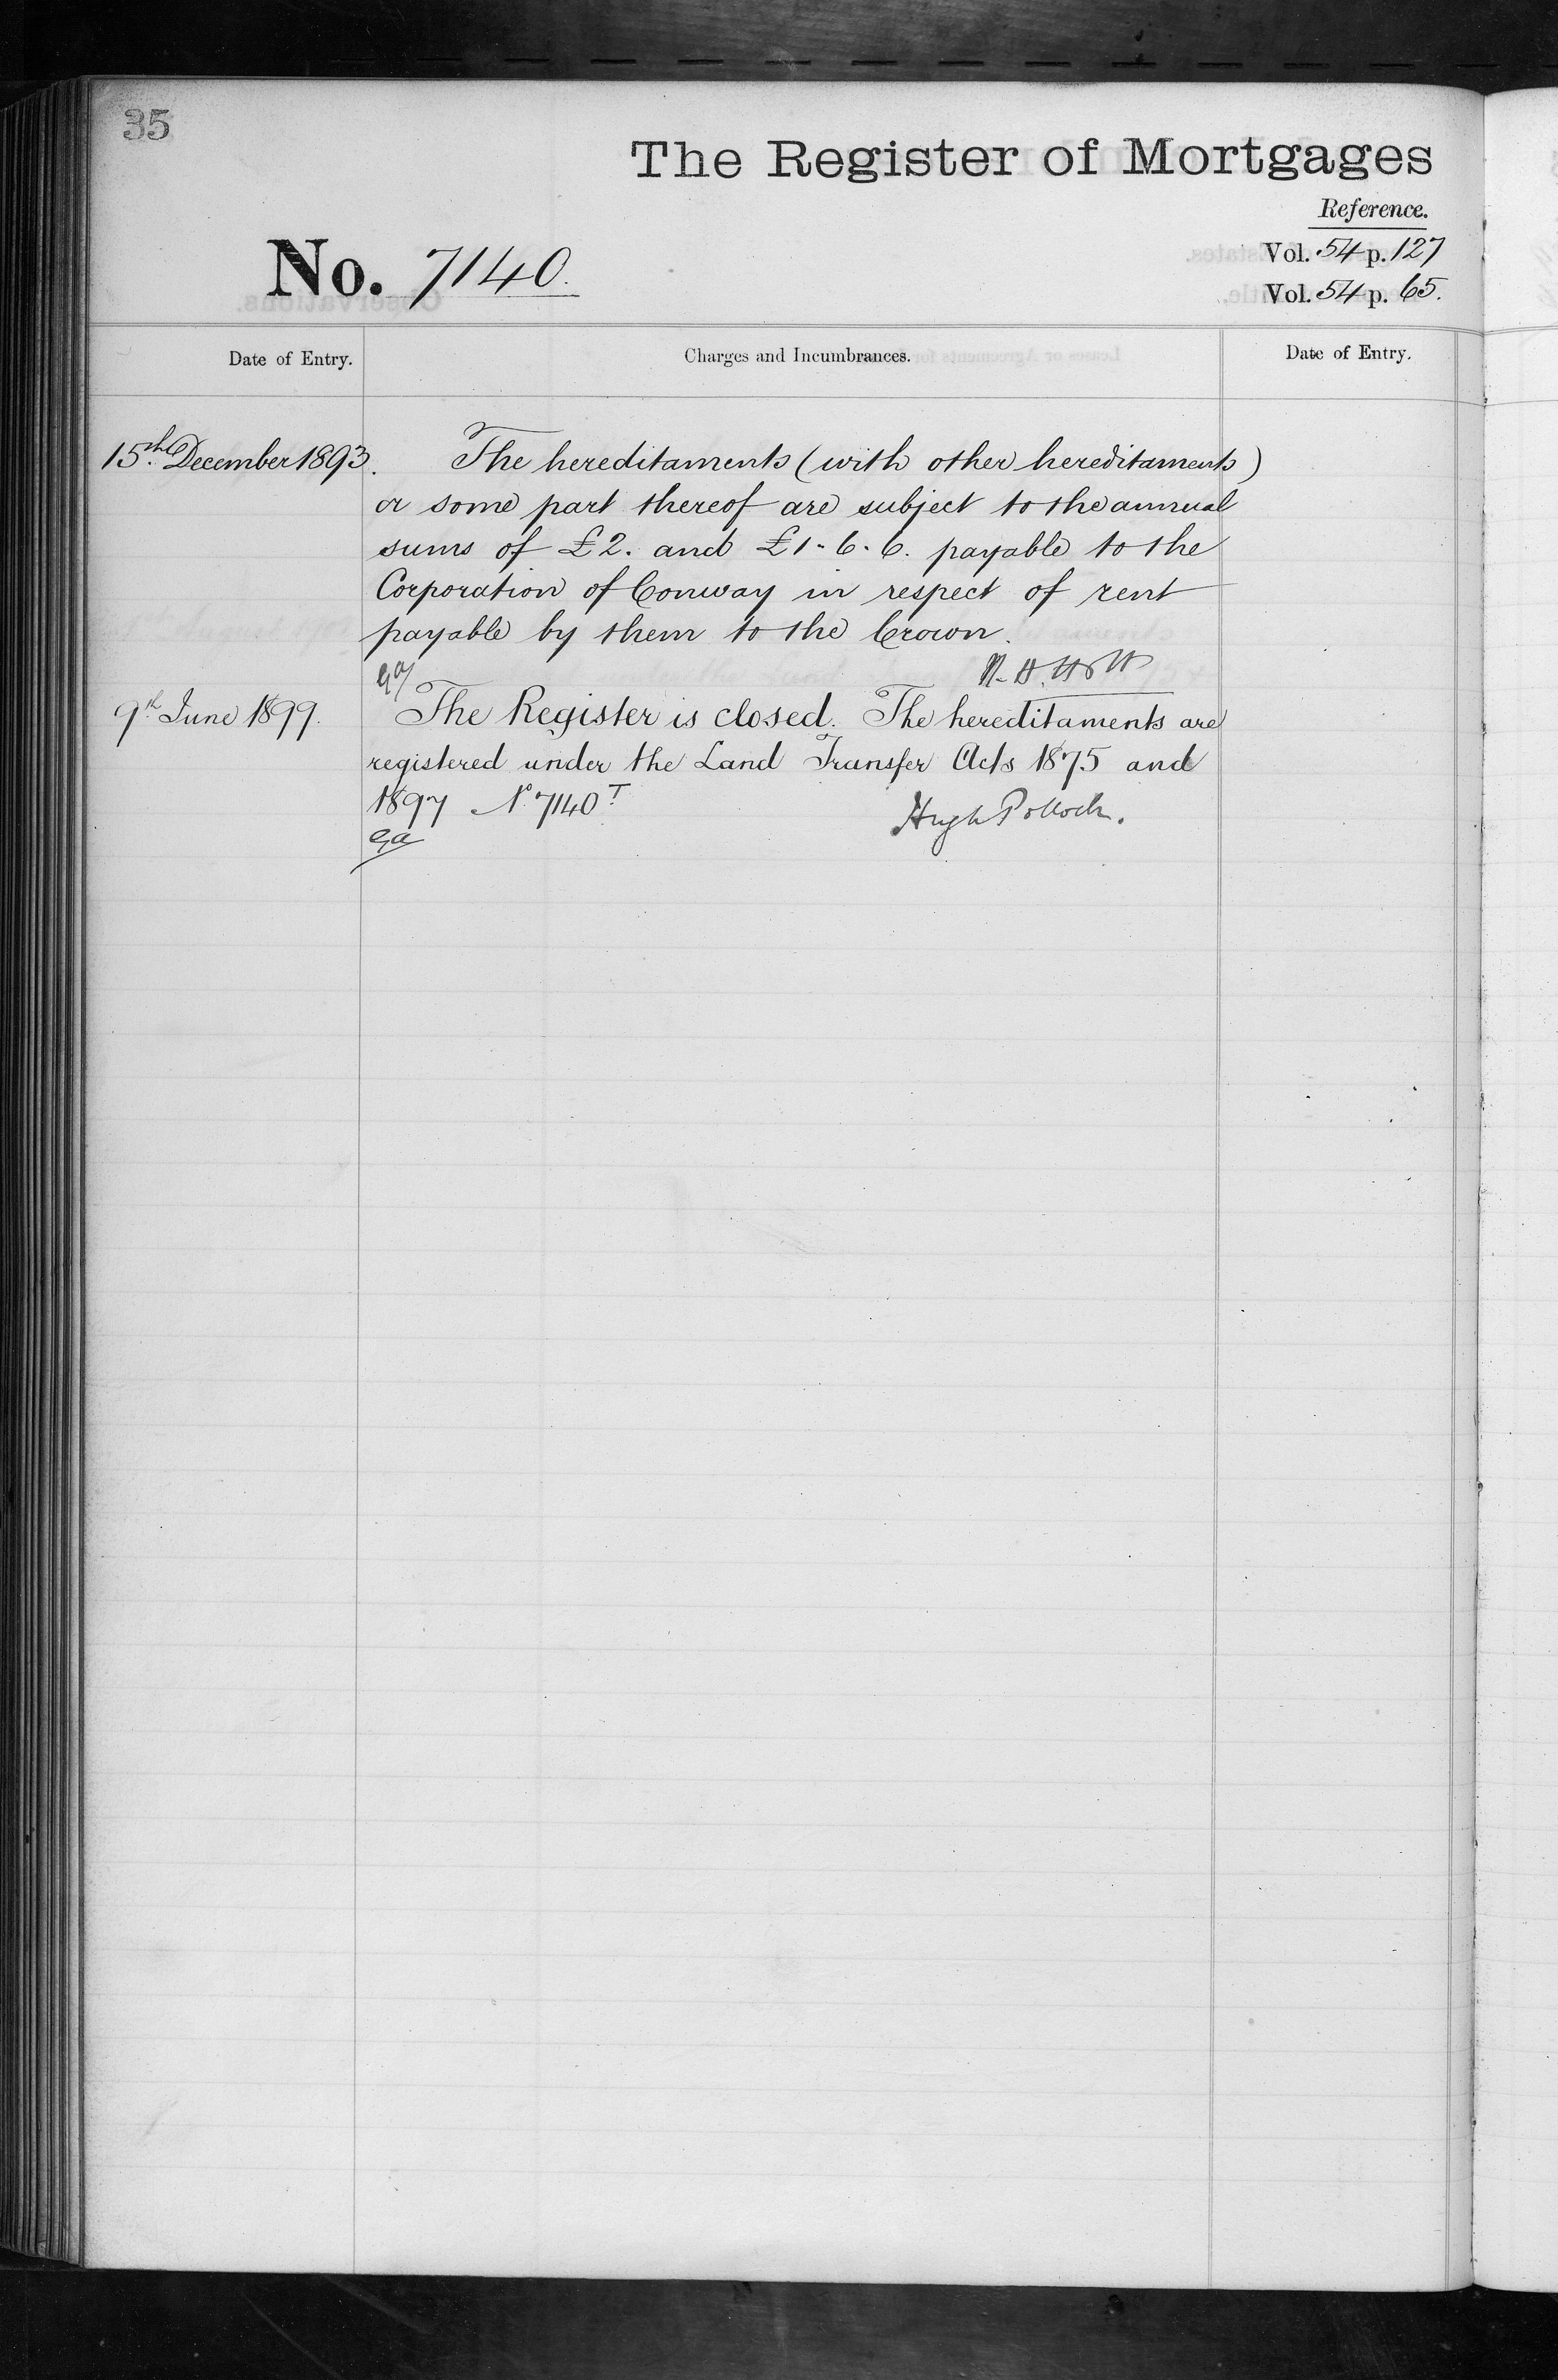 35
The Register of Mortgages
Reference.
No. 7140.
Vol. 54 p. 127
Vol. 54 p. 65.
Date of Entry. Charges and Incumbrances. Date of Entry.
15th December 1893. The hereditaments (with other hereditaments)
or some part thereof are subject to the annual
sums of £2. and £1-6-6. payable to the
Corporation of Conway in respect of rent
payable by them to the Crown.
9th June 1899. The Register is closed. The hereditaments are
registered under the Land Transfer Acts 1875 and
1897 No 7140T
Hugh Pollock.